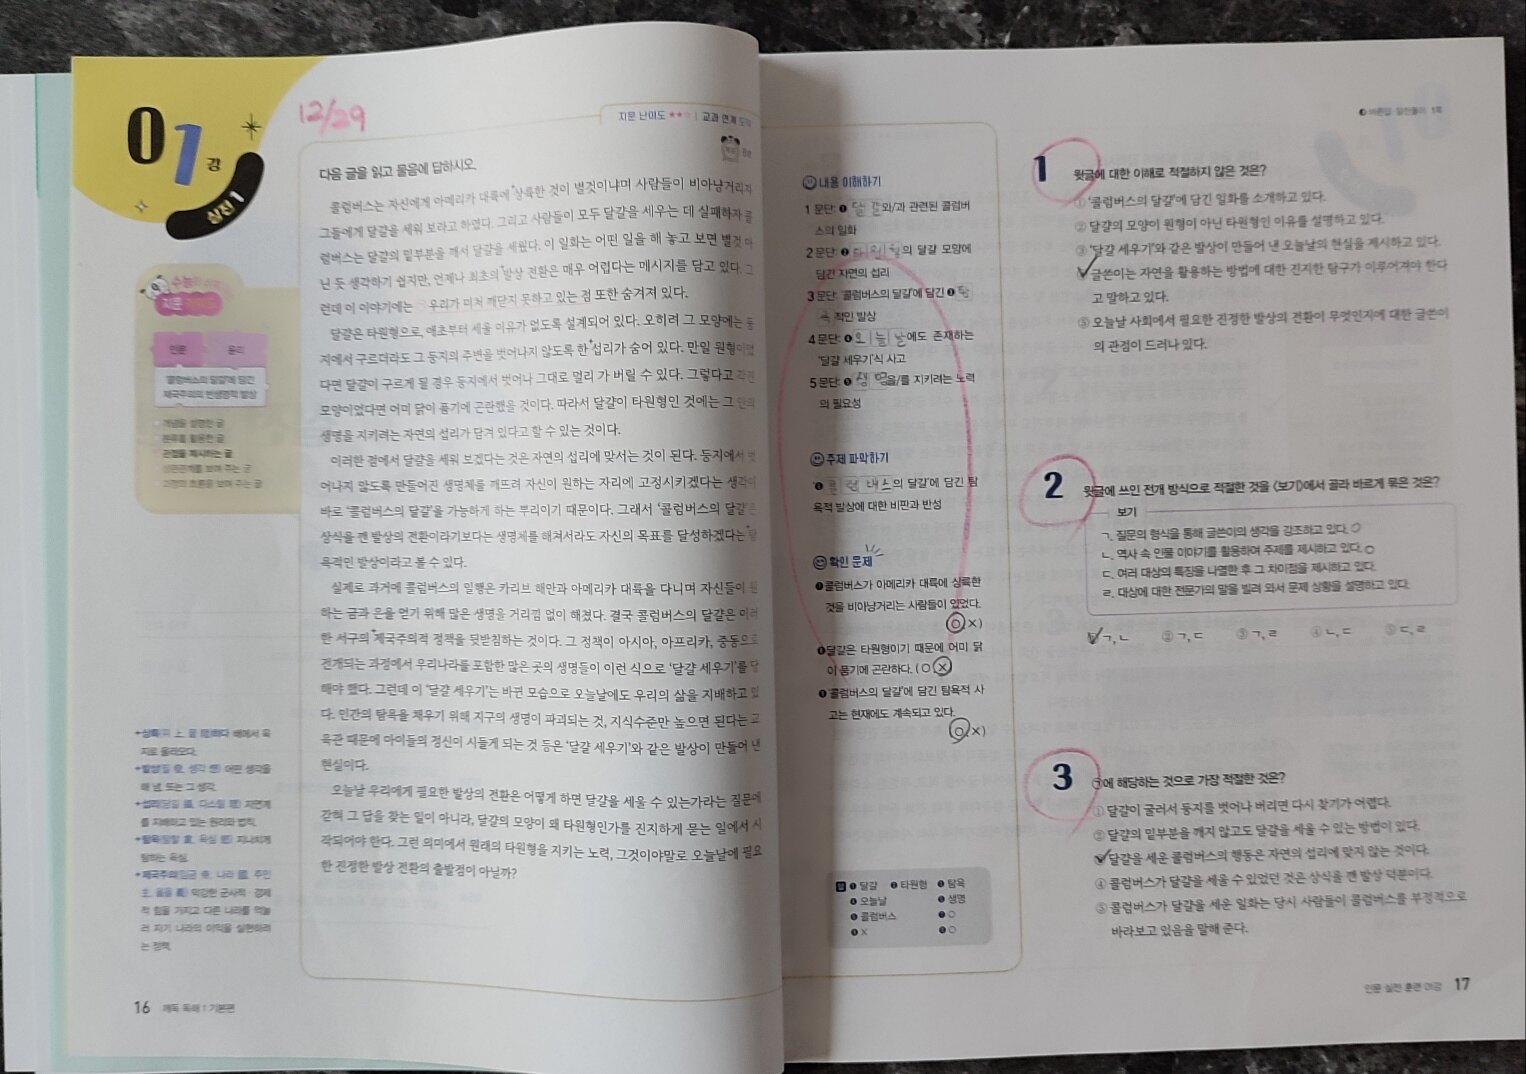 12/29
01강
실전 1
지문 난이도 ★★☆ | 교과 연계 도덕
다음 글을 읽고 물음에 답하시오.
콜럼버스는 자신에게 아메리카 대륙에 상륙한 것이 별것이냐며 사람들이 비아냥거리자
그들에게 달걀을 세워 보라고 하였다. 그리고 사람들이 모두 달걀을 세우는 데 실패하자 콜
럼버스는 달걀의 밑부분을 깨서 달걀을 세웠다. 이 일화는 어떤 일을 해 놓고 보면 별것 아
닌 듯 생각하기 쉽지만, 언제나 최초의 발상 전환은 매우 어렵다는 메시지를 담고 있다. 그
런데 이 이야기에는 우리가 미처 깨닫지 못하고 있는 점 또한 숨겨져 있다.
달걀은 타원형으로, 애초부터 세울 이유가 없도록 설계되어 있다. 오히려 그 모양에는 둥
지에서 구르더라도 그 둥지의 주변을 벗어나지 않도록 한 섭리가 숨어 있다. 만일 원형이었
다면 달걀이 구르게 될 경우 둥지에서 벗어나 그대로 멀리 가 버릴 수 있다. 그렇다고 각진
모양이었다면 어미 닭이 품기에 곤란했을 것이다. 따라서 달걀이 타원형인 것에는 그 안의
생명을 지키려는 자연의 섭리가 담겨 있다고 할 수 있는 것이다.
이러한 점에서 달걀을 세워 보겠다는 것은 자연의 섭리에 맞서는 것이 된다. 둥지에서 벗
어나지 않도록 만들어진 생명체를 깨뜨려 자신이 원하는 자리에 고정시키겠다는 생각이
바로 '콜럼버스의 달걀'을 가능하게 하는 뿌리이기 때문이다. 그래서 '콜럼버스의 달걀'은
상식을 깬 발상의 전환이라기보다는 생명체를 해쳐서라도 자신의 목표를 달성하겠다는 탐
욕적인 발상이라고 볼 수 있다.
실제로 과거에 콜럼버스의 일행은 카리브 해안과 아메리카 대륙을 다니며 자신들이 원
하는 금과 은을 얻기 위해 많은 생명을 거리낌 없이 해쳤다. 결국 콜럼버스의 달걀은 이러
한 서구의 제국주의적 정책을 뒷받침하는 것이다. 그 정책이 아시아, 아프리카, 중동으로
전개되는 과정에서 우리나라를 포함한 많은 곳의 생명들이 이런 식으로 '달걀 세우기'를 당
해야 했다. 그런데 이 '달걀 세우기'는 바뀐 모습으로 오늘날에도 우리의 삶을 지배하고 있
다. 인간의 탐욕을 채우기 위해 지구의 생명이 파괴되는 것, 지식수준만 높으면 된다는 교
육관 때문에 아이들의 정신이 시들게 되는 것 등은 '달걀 세우기'와 같은 발상이 만들어 낸
현실이다.
오늘날 우리에게 필요한 발상의 전환은 어떻게 하면 달걀을 세울 수 있는가라는 질문에
갇혀 그 답을 찾는 일이 아니라, 달걀의 모양이 왜 타원형인가를 진지하게 묻는 일에서 시
작되어야 한다. 그런 의미에서 원래의 타원형을 지키는 노력, 그것이야말로 오늘날에 필요
한 진정한 발상 전환의 출발점이 아닐까?
인문 윤리
'콜럼버스의 달걀'에 담긴
제국주의의 반생명적 발상
개념을 설명한 글
분류를 활용한 글
관점을 제시하는 글
상관관계를 보여 주는 글
과정의 흐름을 보여 주는 글
배에서 육
지로 올라오다.
어떤 생각을
해 냄. 또는 그 생각.
자연계
를 지배하고 있는 원리와 법칙.
지나치게
탐하는 욕심.
막강한 군사적·경제
적 힘을 가지고 다른 나라를 억눌
러 자기 나라의 이익을 실현하려
는 정책.
16 깨독 독해 1 기본편
내용 이해하기
1문단: ❶ 달걀와/과 관련된 콜럼버
스의 일화
2문단: ❷ 타원형의 달걀 모양에
담긴 자연의 섭리
3문단: '콜럼버스의 달걀'에 담긴 ❸ 탐
욕적인 발상
4문단: ❹ 오늘날에도 존재하는
'달걀 세우기'식 사고
5문단: ❺ 생명을/를 지키려는 노력
의 필요성
주제 파악하기
'❶ 콜럼버스의 달걀'에 담긴 탐
욕적 발상에 대한 비판과 반성
확인 문제
❶ 콜럼버스가 아메리카 대륙에 상륙한
것을 비아냥거리는 사람들이 있었다.
(○ ×)
❽ 달걀은 타원형이기 때문에 어미 닭
이 품기에 곤란하다. (○ ×)
❾ '콜럼버스의 달걀'에 담긴 탐욕적 사
고는 현재에도 계속되고 있다.
(○ ×)
답 ❶ 달걀 ❷ 타원형 ❸ 탐욕
❹ 오늘날 ❺ 생명
❻ 콜럼버스 ❼ ○
❽ × ❾ ○
1 윗글에 대한 이해로 적절하지 않은 것은?
① '콜럼버스의 달걀'에 담긴 일화를 소개하고 있다.
② 달걀의 모양이 원형이 아닌 타원형인 이유를 설명하고 있다.
③ '달걀 세우기'와 같은 발상이 만들어 낸 오늘날의 현실을 제시하고 있다.
④ 글쓴이는 자연을 활용하는 방법에 대한 진지한 탐구가 이루어져야 한다
고 말하고 있다.
⑤ 오늘날 사회에서 필요한 진정한 발상의 전환이 무엇인지에 대한 글쓴이
의 관점이 드러나 있다.
2 윗글에 쓰인 전개 방식으로 적절한 것을 <보기>에서 골라 바르게 묶은 것은?
보기
ㄱ. 질문의 형식을 통해 글쓴이의 생각을 강조하고 있다. ○
ㄴ. 역사 속 인물 이야기를 활용하여 주제를 제시하고 있다. ○
ㄷ. 여러 대상의 특징을 나열한 후 그 차이점을 제시하고 있다.
ㄹ. 대상에 대한 전문가의 말을 빌려 와서 문제 상황을 설명하고 있다.
① ㄱ, ㄴ ② ㄱ, ㄷ ③ ㄱ, ㄹ ④ ㄴ, ㄷ ⑤ ㄷ, ㄹ
3 ㉠에 해당하는 것으로 가장 적절한 것은?
① 달걀이 굴러서 둥지를 벗어나 버리면 다시 찾기가 어렵다.
② 달걀의 밑부분을 깨지 않고도 달걀을 세울 수 있는 방법이 있다.
③ 달걀을 세운 콜럼버스의 행동은 자연의 섭리에 맞지 않는 것이다.
④ 콜럼버스가 달걀을 세울 수 있었던 것은 상식을 깬 발상 덕분이다.
⑤ 콜럼버스가 달걀을 세운 일화는 당시 사람들이 콜럼버스를 부정적으로
바라보고 있음을 말해 준다.
인문 실전 훈련 01강 17